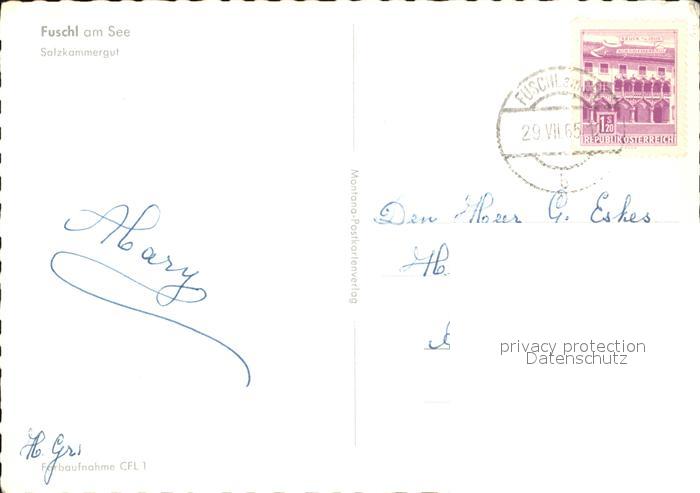 Fuschl am See
Salzkammergut
29 VII 65
1 S 20
REPUBLIK ÖSTERREICH
Montana-Postkartenverlag
Den Heer G. Eskes
H.
privacy protection
Datenschutz
Mary
H. Gr.
Farbaufnahme CFL 1